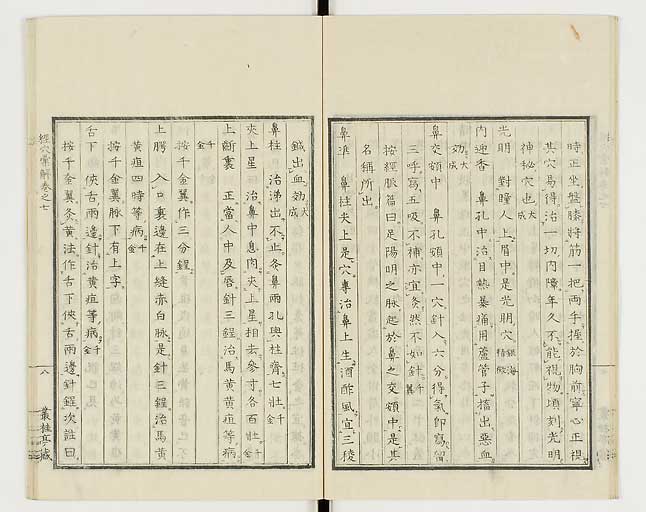 時正坐盤膝將筋一把兩手握於胸前寧心正視
其穴易得治一切內障年久不能視物頃刻光明
神秘穴也大成
光明 對瞳人上眉中是光明穴銀海精微
內迎香 鼻孔中治目熱暴痛用蘆管子搐出惡血
效大成
鼻交頞中 鼻孔頞中一穴針入六分得氣即寫留
三呼寫五吸不補亦宜灸然不如針千翼
按經脈篇曰足陽明之脈起於鼻之交頞中是其
名稱所出
鼻準 鼻柱尖上是穴專治鼻上生酒醡風宜三稜
鍼出血大成
鼻柱 治涕出不止灸鼻兩孔與柱齊七壯千金
夾上星 治鼻中息肉夾上星相去參寸各百壯千金
上齗裏 正當人中及唇針三鋥治馬黃黃疸等病
千金
按千金翼作三分鋥
上腭 入口裏邊在上縫赤白脈是針三鋥治馬黃
黃疸四時等病千金
按千金翼脈下有上字
舌下 俠舌兩邊針治黃疸等病千金
按千金翼灸黃法作舌下俠舌兩邊針鋥次註曰
經穴彙解卷之七
八
叢桂亭藏